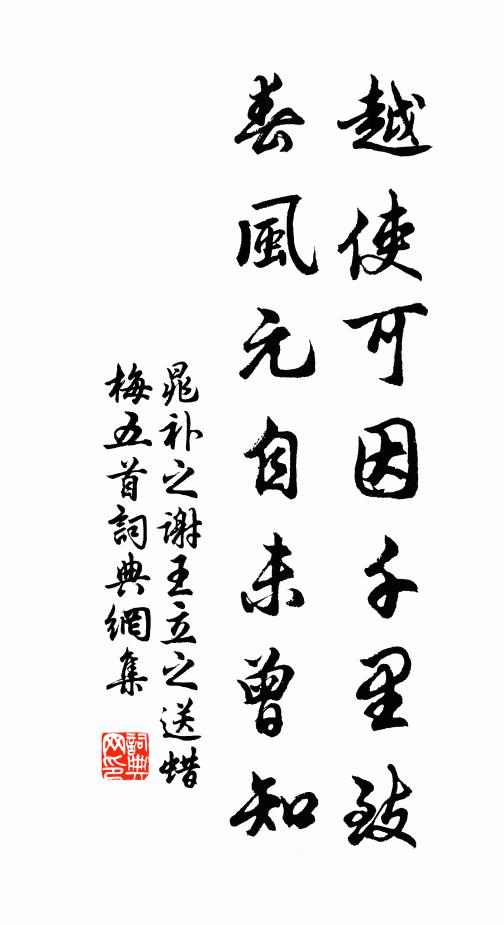 越使可因千里致
春風元自未曾知
晁补之谢王立之送蜡
梅五首詞典網集
詞典
网印